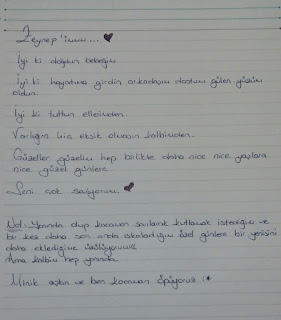 Zeynep'imm...
İyi ki doğdun bebeğim
İyi ki hayatıma girdin arkadaşım dostum gülen yüzüm
oldun.
İyi ki tuttun ellerimden.
Varlığın hiç eksik olmasın kalbimden.
Güzeller güzelim hep birlikte daha nice nice yaşlara
nice güzel günlere.
Seni çok seviyorum.
Not: Yanında olup kocaman sarılarak kutlamak isterdim ve
bir kez daha son anda ıskaladığım özel günlere bir yenisini
daha eklediğime üzülüyorum
Ama kalbim hep yanında.
Minik aşkın ve ben kocaman öpüyoruz :*